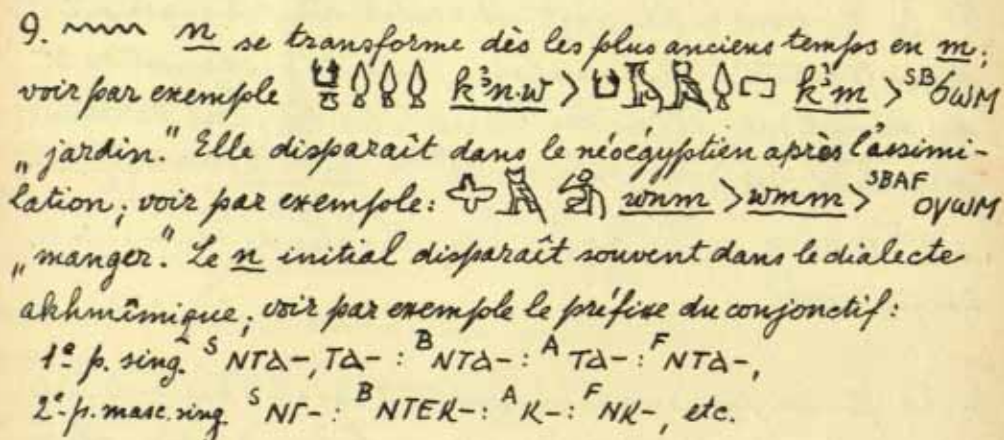 9. 𓈖 n se transforme dès les plus anciens temps en m;
voir par exemple kꜣn.w > kꜣm > ˢᴮϭⲱⲙ
„jardin.“ Elle disparaît dans le néoégyptien après l'assimi-
lation; voir par exemple: wnm > wmm > ˢᴮᴬꟳ ⲟⲩⲱⲙ
„manger.“ Le n initial disparaît souvent dans le dialecte
akhmîmique; voir par exemple le préfixe du conjonctif:
1ᵉ p. sing. ˢ ⲛⲧⲁ-, ⲧⲁ- : ᴮ ⲛⲧⲁ- : ᴬ ⲧⲁ- : ꟳ ⲛⲧⲁ-,
2ᵉ p. masc. sing. ˢ ⲛⲅ- : ᴮ ⲛⲧⲉⲕ- : ᴬ ⲕ- : ꟳ ⲛⲕ-, etc.